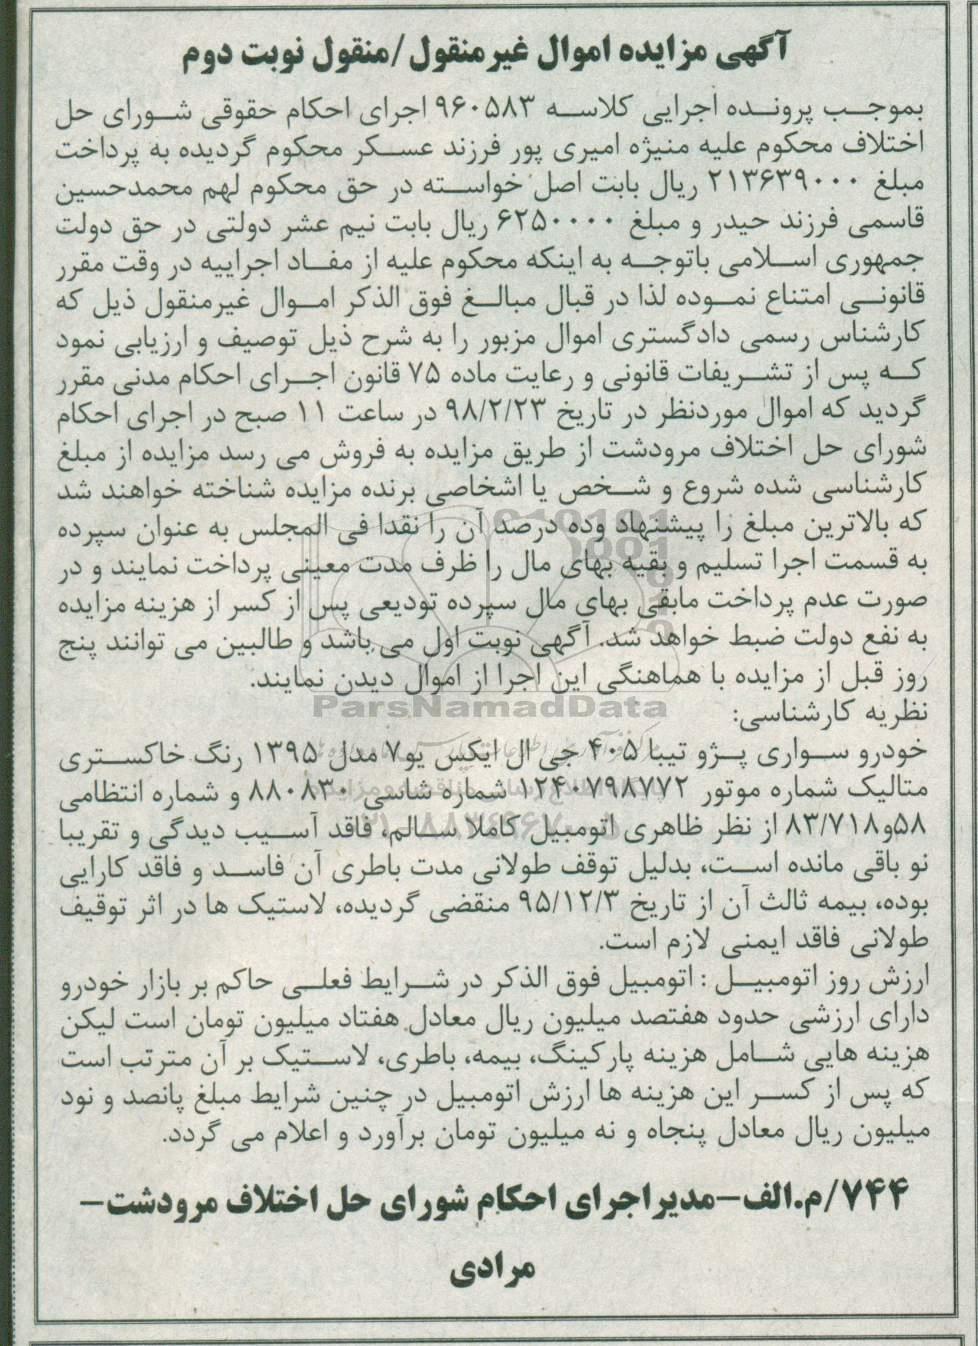 آگهی مزایده اموال غیرمنقول /منقول نوبت دوم
بموجب پرونده اجرایی کلاسه ۹۶۰۵۸۳ اجرای احکام حقوقی شورای حل
اختلاف محکوم علیه منیژه امیری پور فرزند عسکر محکوم گردیده به پرداخت
مبلغ ۲۱۳۶۳۹۰۰۰ ریال بابت اصل خواسته در حق محکوم لهم محمدحسین
قاسمی فرزند حیدر و مبلغ ۶۲۵۰۰۰۰ ریال بابت نیم عشر دولتی در حق دولت
جمهوری اسلامی باتوجه به اینکه محکوم علیه از مفاد اجراییه در وقت مقرر
قانونی امتناع نموده لذا در قبال مبالغ فوق الذکر اموال غیرمنقول ذیل که
کارشناس رسمی دادگستری اموال مزبور را به شرح ذیل توصیف و ارزیابی نمود
که پس از تشریفات قانونی و رعایت ماده ۷۵ قانون اجرای احکام مدنی مقرر
گردید که اموال موردنظر در تاریخ ۹۸/۲/۲۳ در ساعت ۱۱ صبح در اجرای احکام
شورای حل اختلاف مرودشت از طریق مزایده به فروش می رسد مزایده از مبلغ
کارشناسی شده شروع و شخص یا اشخاصی برنده مزایده شناخته خواهند شد
که بالاترین مبلغ را پیشنهاد وده درصد آن را نقدا فی المجلس به عنوان سپرده
به قسمت اجرا تسلیم و بقیه بهای مال را ظرف مدت معینی پرداخت نمایند و در
صورت عدم پرداخت مابقی بهای مال سپرده تودیعی پس از کسر از هزینه مزایده
به نفع دولت ضبط خواهد شد. آگهی نوبت اول می باشد و طالبین می توانند پنج
روز قبل از مزایده با هماهنگی این اجرا از اموال دیدن نمایند.
ParsNamadData
نظریه کارشناسی:
خودرو سواری پژو تیبا ۴۰۵ جی ال ایکس یو۷ مدل ۱۳۹۵ رنگ خاکستری
متالیک شماره موتور ۱۲۴۰۷۹۸۷۷۲ شماره شاسی ۸۸۰۸۳۰ و شماره انتظامی
۵۸و۸۳/۷۱۸ از نظر ظاهری اتومبیل کاملا سالم، فاقد آسیب دیدگی و تقریبا
نو باقی مانده است، بدلیل توقف طولانی مدت باطری آن فاسد و فاقد کارایی
بوده، بیمه ثالث آن از تاریخ ۹۵/۱۲/۳ منقضی گردیده، لاستیک ها در اثر توقیف
طولانی فاقد ایمنی لازم است.
ارزش روز اتومبیل : اتومبیل فوق الذکر در شرایط فعلی حاکم بر بازار خودرو
دارای ارزشی حدود هفتصد میلیون ریال معادل هفتاد میلیون تومان است لیکن
هزینه هایی شامل هزینه پارکینگ، بیمه، باطری، لاستیک بر آن مترتب است
که پس از کسر این هزینه ها ارزش اتومبیل در چنین شرایط مبلغ پانصد و نود
میلیون ریال معادل پنجاه و نه میلیون تومان برآورد و اعلام می گردد.
۷۴۴/م.الف-مدیراجرای احکام شورای حل اختلاف مرودشت-
مرادی